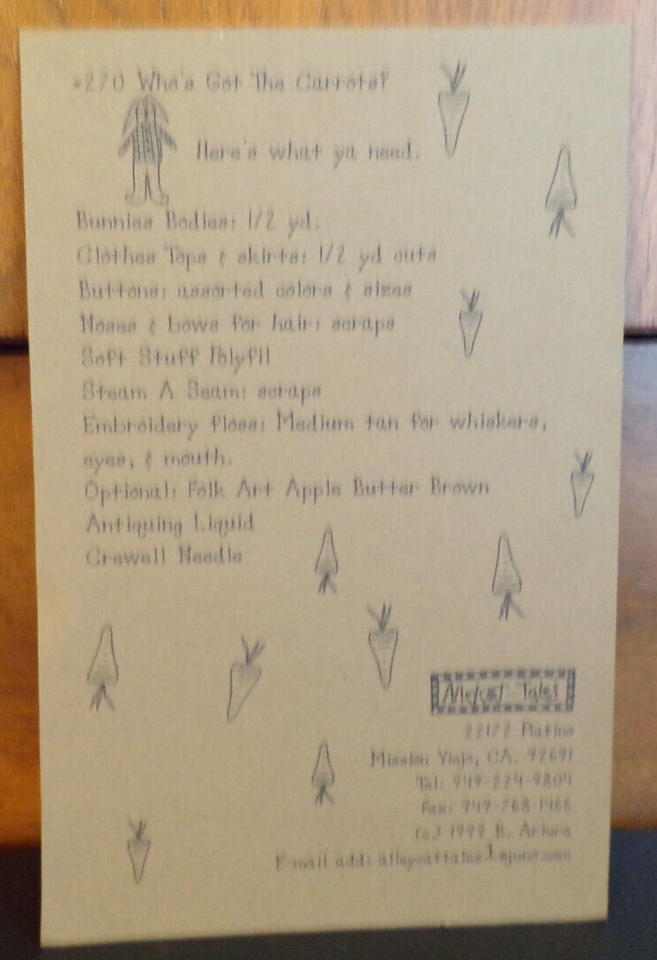 #270 Who's Got The Carrots?
Here's what ya need.
Bunnies Bodies: 1/2 yd.
Clothes Tops & skirts: 1/2 yd cuts
Buttons: assorted colors & sizes
Noses & bows for hair: scraps
Soft Stuff Polyfil
Steam A Seam: scraps
Embroidery floss: Medium tan for whiskers,
eyes, & mouth.
Optional: Folk Art Apple Butter Brown
Antiquing Liquid
Crewell Needle
Alleycat Tales
22172 Platino
Mission Viejo, CA. 92691
Tel: 949-224-9804
Fax: 949-768-1466
(c) 1999 B.
E-mail add: